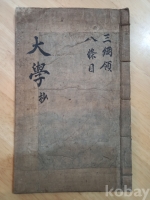 三綱領
八條目
大學抄
kobay